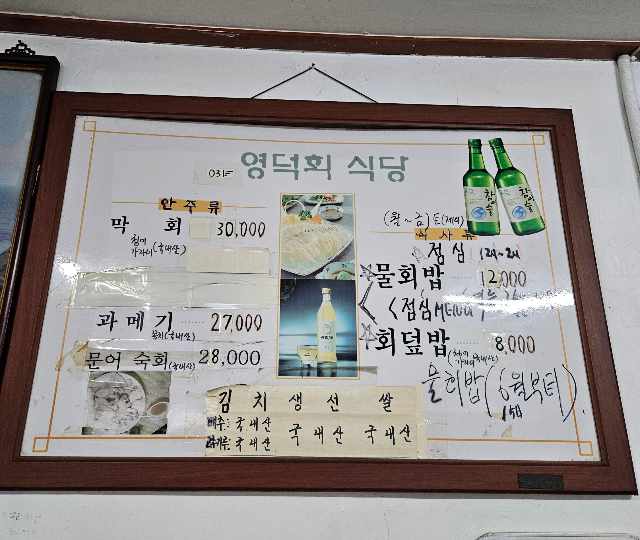 영덕회 식당
안주류
막 회 30,000
청어
가자미 (국내산)
과메기 27,000
꽁치(국내산)
문어 숙회 (국내산) 28,000
(월~금)
식사류
점심 12시~2시
물회밥 12,000
<점심MENU>
회덮밥 8,000
물회밥 (6월부터)
김치 생선 쌀
배추: 국내산 국내산 국내산
고추가루: 국내산